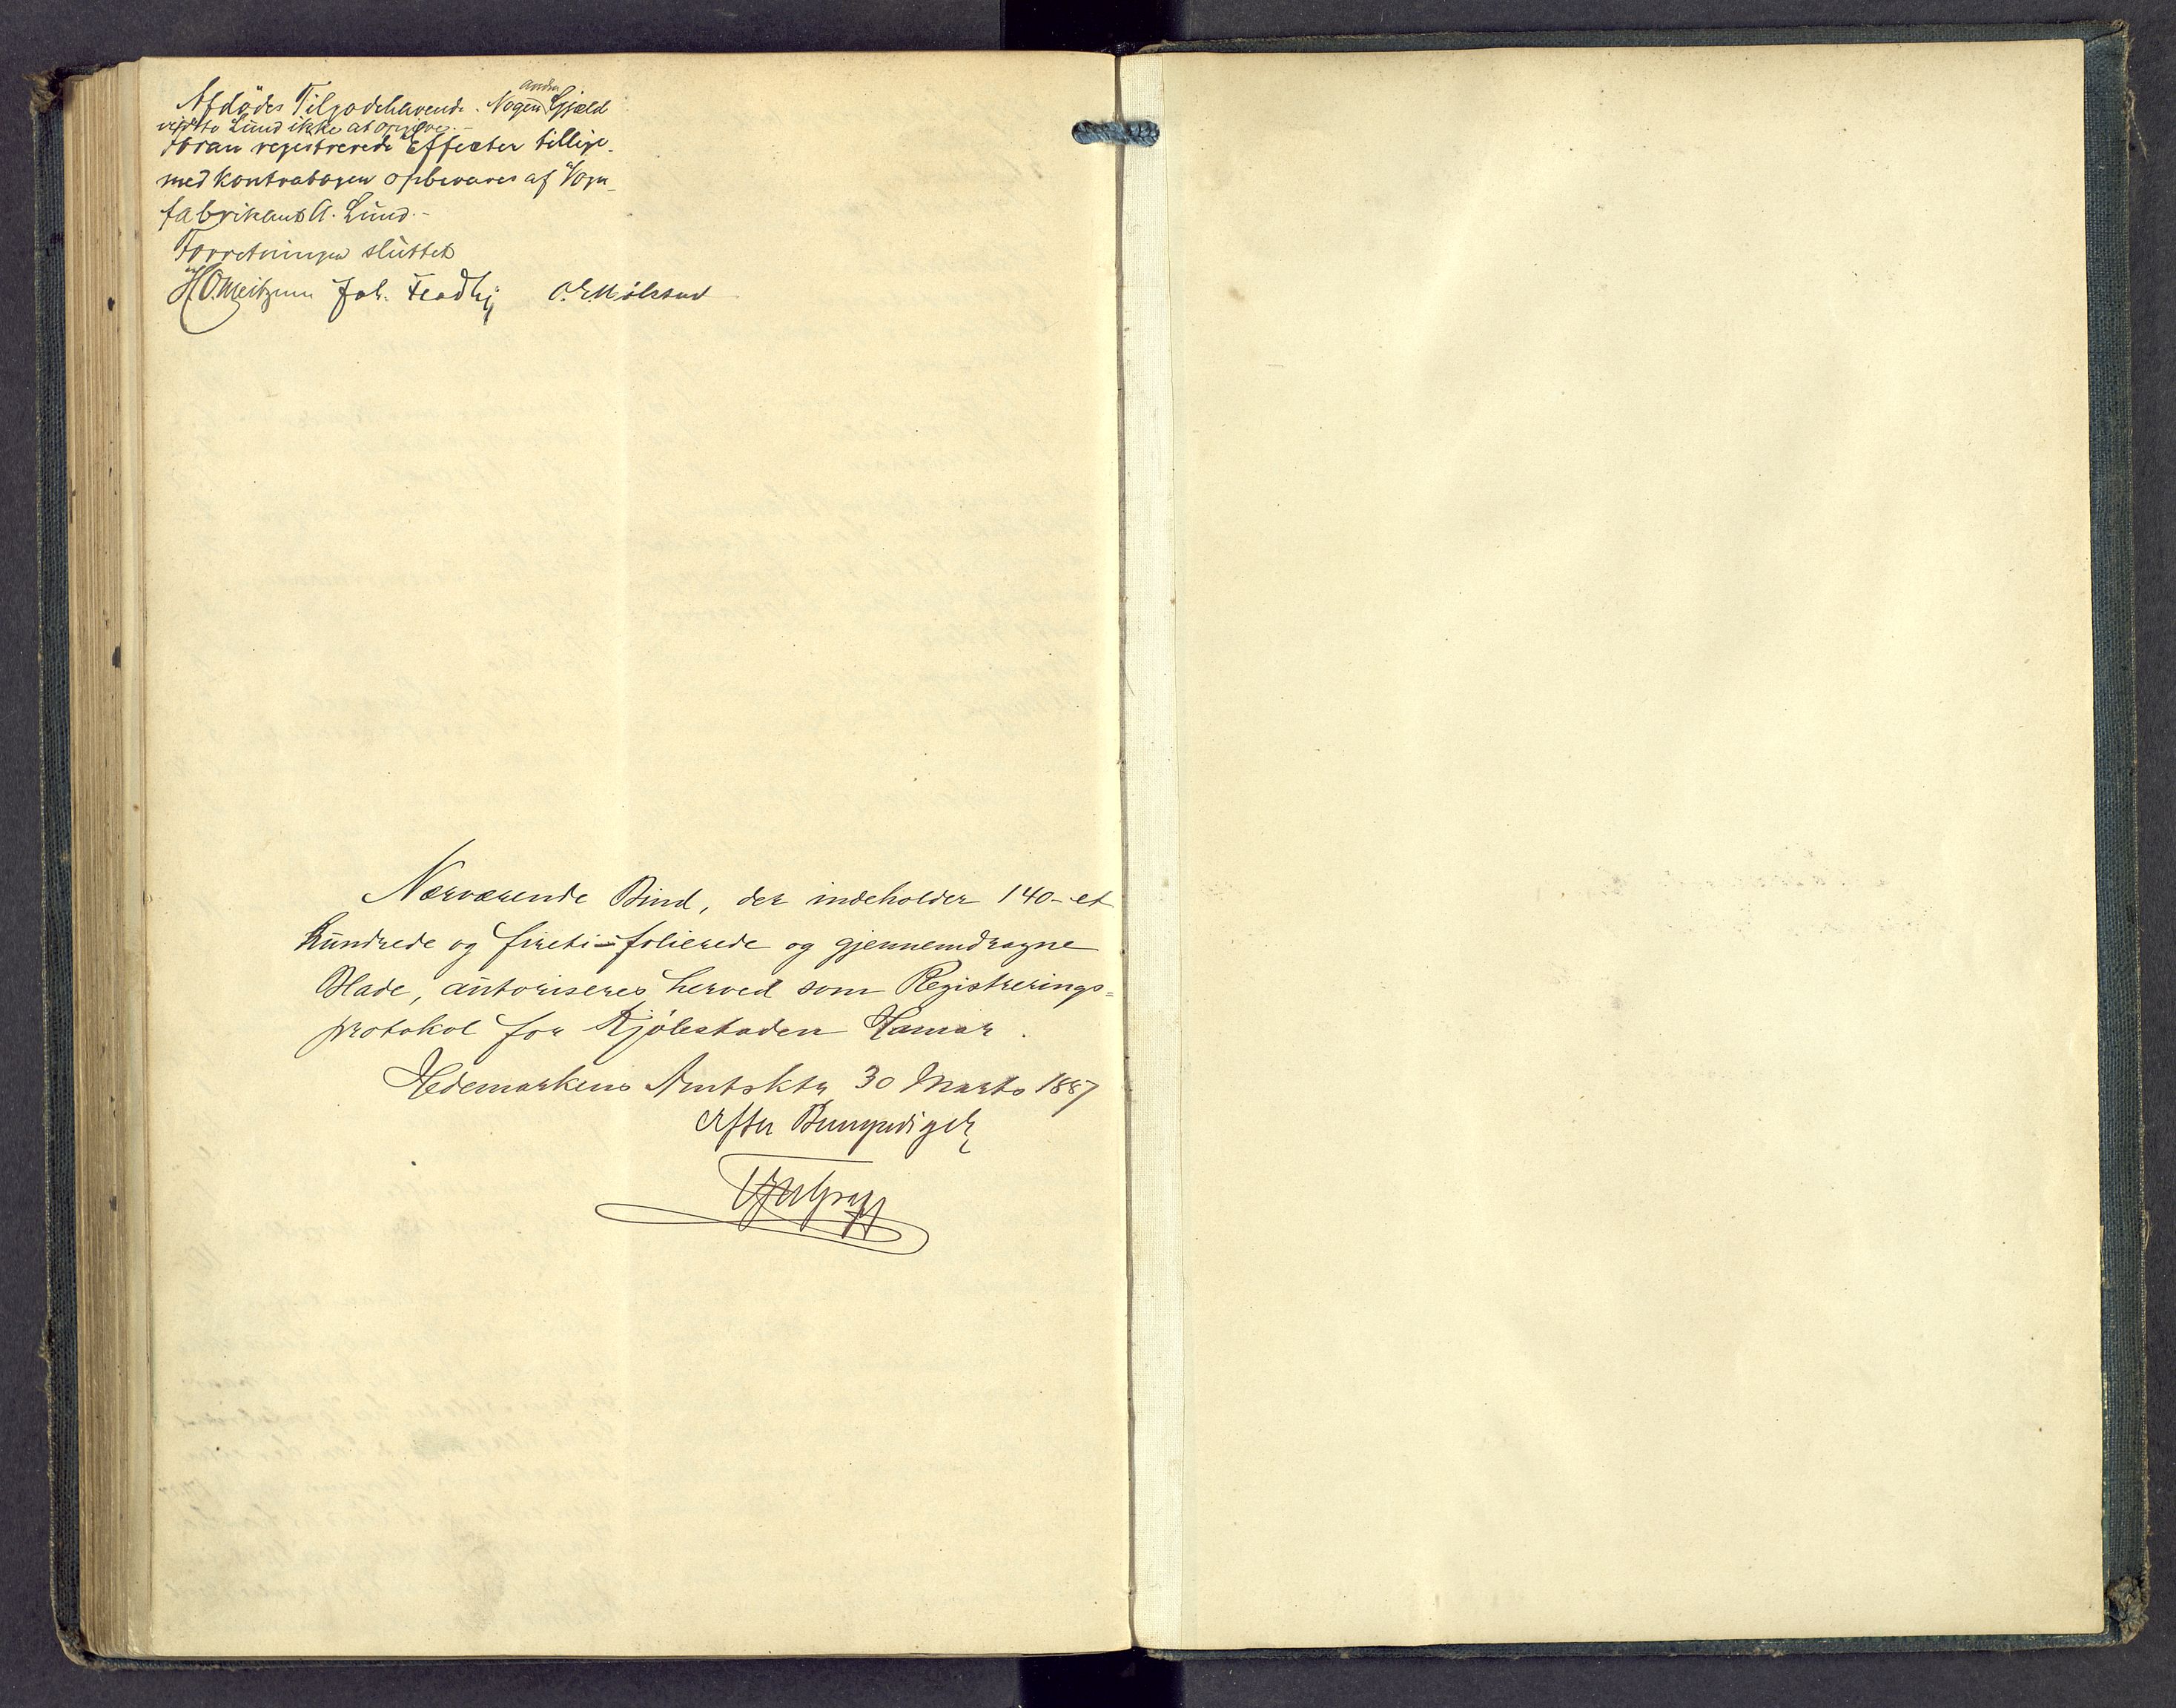 Afdödes Tilgodehavende. Nogen anden Gjæld
vidste Lund ikke at opgive.
Foran registrerede Effecter tillige-
med Kontrabogen opbevares af Vogn-
fabrikant A. Lund.-
Forretningen sluttet
Joh.
Nærværende Bind, der indeholder 140-et
hundrede og fireti-folierede og gjennemdragne
Blade, autoriseres herved som Registrerings=
protokol for Kjøbstaden Hamar.
Hedemarkens Amtsktr 30 Marts 1887
Efter Bemyndigelse